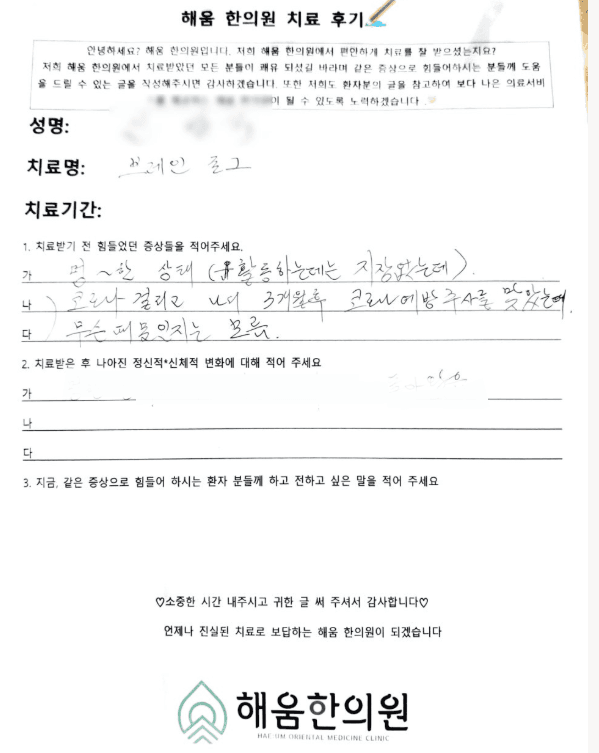 해움 한의원 치료 후기
안녕하세요? 해움 한의원입니다. 저희 해움 한의원에서 편안하게 치료를 잘 받으셨는지요?
저희 해움 한의원에서 치료받았던 모든 분들이 쾌유 되셨길 바라며 같은 증상으로 힘들어하시는 분들께 도움
을 드릴 수 있는 글을 작성해주시면 감사하겠습니다. 또한 저희도 환자분의 글을 참고하여 보다 나은 의료서비
이 될 수 있도록 노력하겠습니다.
성명:
치료명: 브레인 포그
치료기간:
1. 치료받기 전 힘들었던 증상들을 적어주세요.
가 멍~한 상태 (활동하는데는 지장없는데).
나 코로나 걸리고 나서 3개월후 코로나 예방주사를 맞았는데
다 무슨 때문인지는 모름.
2. 치료받은 후 나아진 정신적*신체적 변화에 대해 적어 주세요
가
나
다
3. 지금, 같은 증상으로 힘들어 하시는 환자 분들께 하고 전하고 싶은 말을 적어 주세요
♡소중한 시간 내주시고 귀한 글 써 주셔서 감사합니다♡
언제나 진실된 치료로 보답하는 해움 한의원이 되겠습니다
해움한의원
HAE:UM ORIENTAL MEDICINE CLINIC